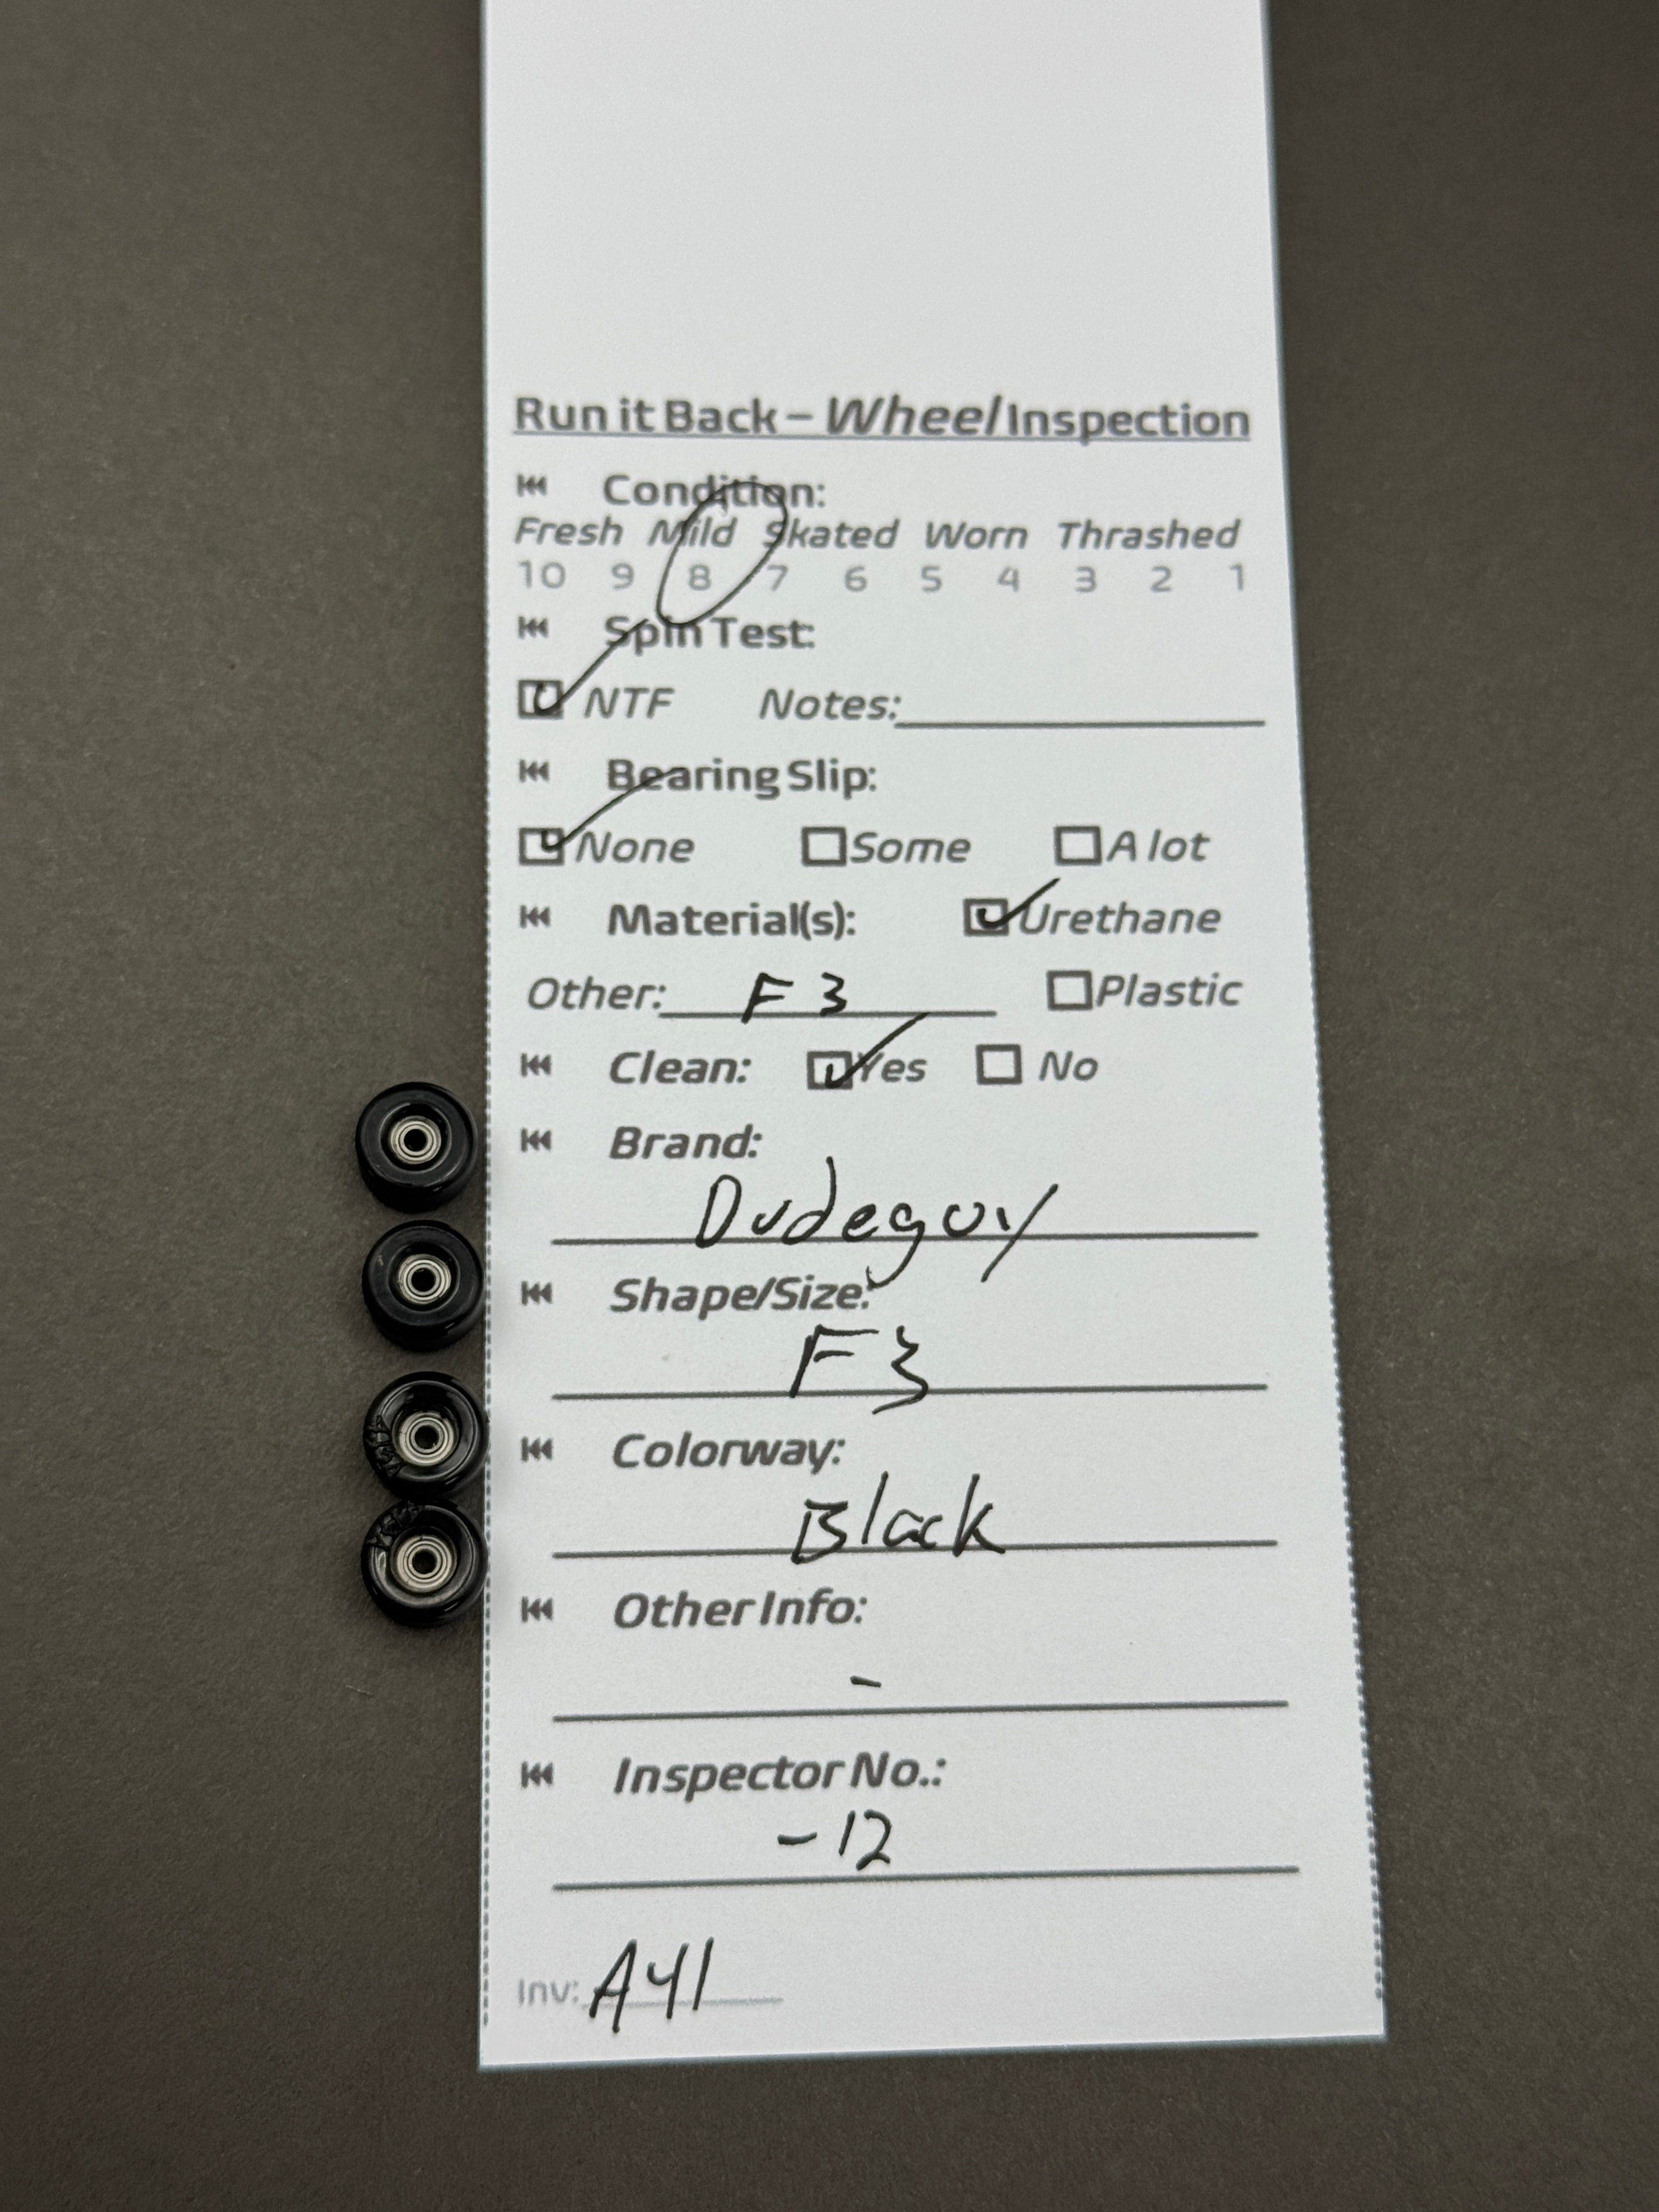 Run it Back – Wheel Inspection
Condition:
Fresh Mild Skated Worn Thrashed
10 9 8 7 6 5 4 3 2 1
Spin Test:
NTF Notes:
Bearing Slip:
None Some A lot
Material(s): Urethane
Other: F3 Plastic
Clean: Yes No
Brand:
Dudeguy
Shape/Size:
F3
Colorway:
Black
Other Info:
-
Inspector No.:
-12
Inv: A41